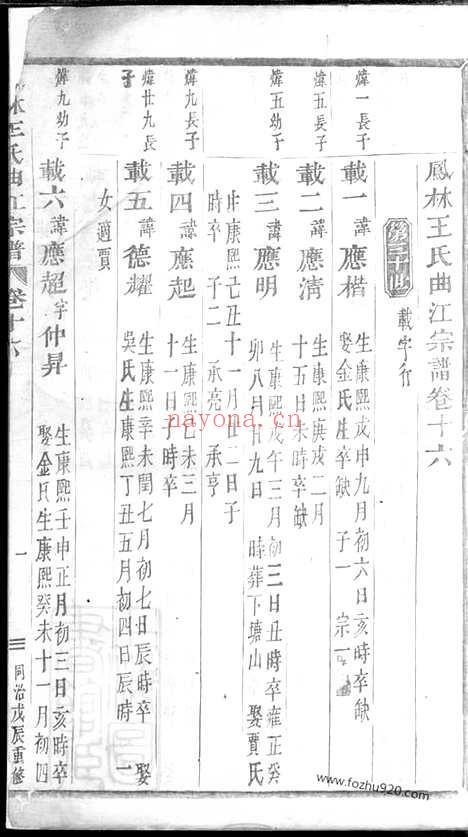 鳳林王氏曲江宗譜卷十六
載字行
煒一長子
載一諱應楷
生康熙戊申九月初六日亥時卒缺
娶金氏生卒缺 子一 宗一
煒五長子
載二諱應清
生康熙庚戌二月
十五日未時卒缺
煒五幼子
載三諱應明
生康熙戊午三月初三日丑時卒雍正癸
卯八月廿九日 時葬下塘山 娶賈氏
生康熙己丑十一月廿二日子
時卒 子二 承亮 承亨
煒九長子
載四諱應起
生康熙乙未三月
十一日子時卒
煒廿九長
子
載五諱德耀
生康熙辛未閏七月初七日辰時卒 娶
吳氏生康熙丁丑五月初四日辰時 一
女適賈
煒九幼子
載六諱應超字仲昇
生康熙壬申正月初三日亥時卒
娶金氏生康熙癸未十一月初四
林王氏曲江宗譜 卷十六
一
同治戊辰重修
nayona.cn
www.fozhu920.com